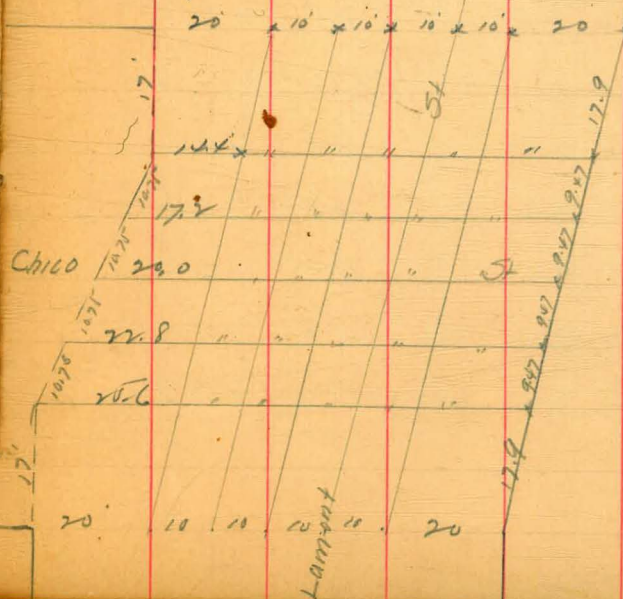 20' 10' 10' 10' 10' 20
17' St 17.9
14.4 " " " " "
10.75 17.2 " " " " " 9.47
Chico 10.75 20.0 " " " " St 9.47
10.75 22.8 " " " " 9.47
10.75 25.6 " " " " " 9.47
17' 17.9
20 10 10 10 10 20
Lamont